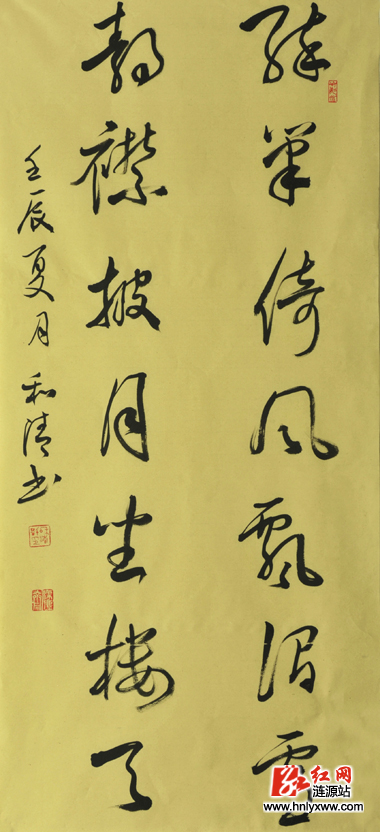 醉筆倚風飄澗雪
靜襟披月坐樓天
壬辰夏月和清书
红网
涟源站
www.hnlyxww.com